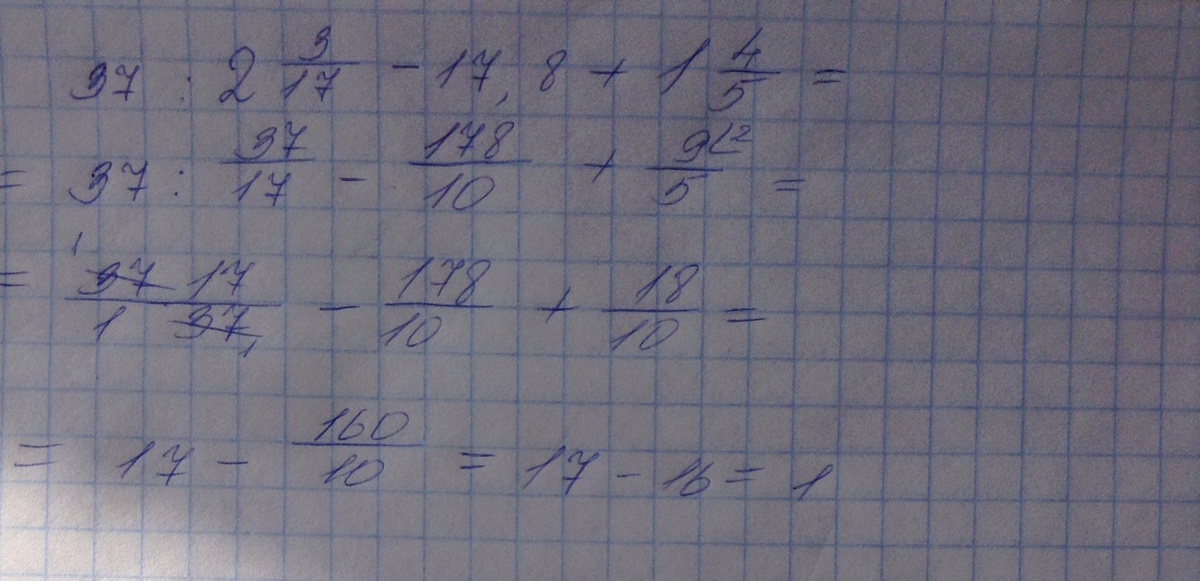 37 : 2 3/17 - 17,8 + 1 4/5 =
= 37 : 37/17 - 178/10 + 9/5 ⌊2 =
= 37 17/1 37 - 178/10 + 18/10 =
= 17 - 160/10 = 17 - 16 = 1